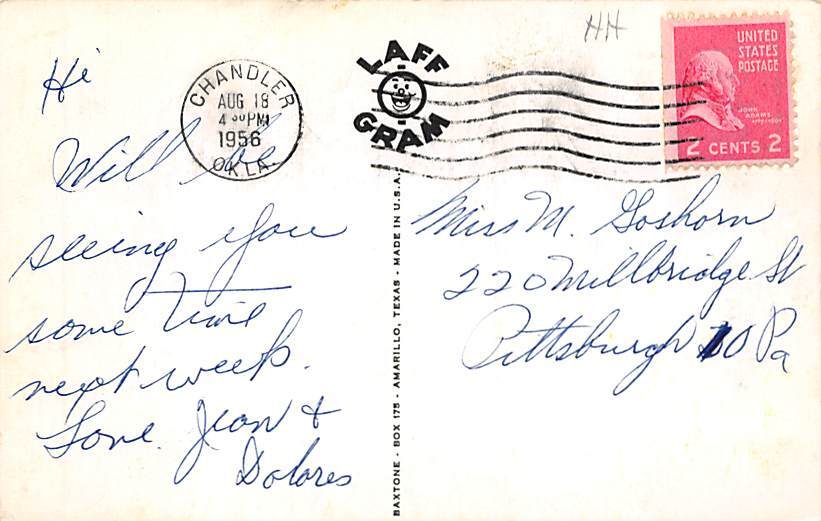 HH
LAFF
GRAM
CHANDLER
AUG 18
4 00 PM
1956
OKLA.
UNITED
STATES
POSTAGE
JOHN
ADAMS
2 CENTS 2
Hi
Will be
seeing you
some time
next week.
Love. Jean &
Dolores
BAXTONE - BOX 175 - AMARILLO, TEXAS - MADE IN U.S.A.
Miss M. Goshorn
220 Millbridge St
Pittsburgh 10 Pa